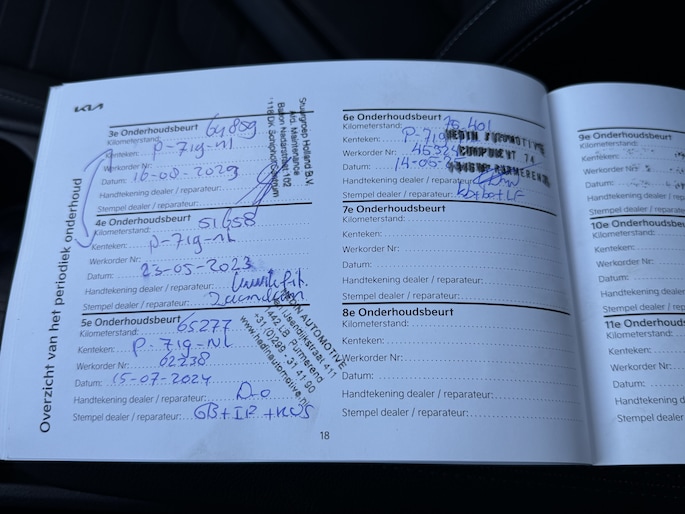 KIA
Overzicht van het periodiek onderhoud
3e Onderhoudsbeurt
Kilometerstand: 64859
Kenteken: P-719-NL
Werkorder Nr:
Datum: 16-08-2023
Handtekening dealer / reparateur:
Stempel dealer / reparateur:
Holland B.V.
4e Onderhoudsbeurt
Kilometerstand: 51658
Kenteken: P-719-NL
Werkorder Nr:
Datum: 23-05-2023
Handtekening dealer / reparateur:
Stempel dealer / reparateur:
5e Onderhoudsbeurt
Kilometerstand: 65277
Kenteken: P-719-NL
Werkorder Nr: 62238
Datum: 15-07-2024
Handtekening dealer / reparateur:
Stempel dealer / reparateur: GB+IF+KUS
HEDIN AUTOMOTIVE
1442 LB Purmerend
+31(0)299 - 31 41 90
www.hedinautomotive.nl
18
6e Onderhoudsbeurt
Kilometerstand: 76.401
Kenteken: P-719
Werkorder Nr: 45324
Datum: 14-05-25
Handtekening dealer / reparateur:
Stempel dealer / reparateur:
HEDIN AUTOMOTIVE
COMPONENT 74
PURMEREND
7e Onderhoudsbeurt
Kilometerstand:
Kenteken:
Werkorder Nr:
Datum:
Handtekening dealer / reparateur:
Stempel dealer / reparateur:
8e Onderhoudsbeurt
Kilometerstand:
Kenteken:
Werkorder Nr:
Datum:
Handtekening dealer / reparateur:
Stempel dealer / reparateur:
9e Onderhoudsbeurt
Kilometerstand:
Kenteken:
Werkorder Nr
Datum:
Handtekening deale
Stempel dealer / rep
10e Onderhouds
Kilometerstand:
Kenteken:
Werkorder Nr:
Datum:
Handtekening deale
Stempel dealer / re
11e Onderhouds
Kilometerstand:
Kenteken:
Werkorder Nr:
Datum:
Handtekening
Stempel dealer